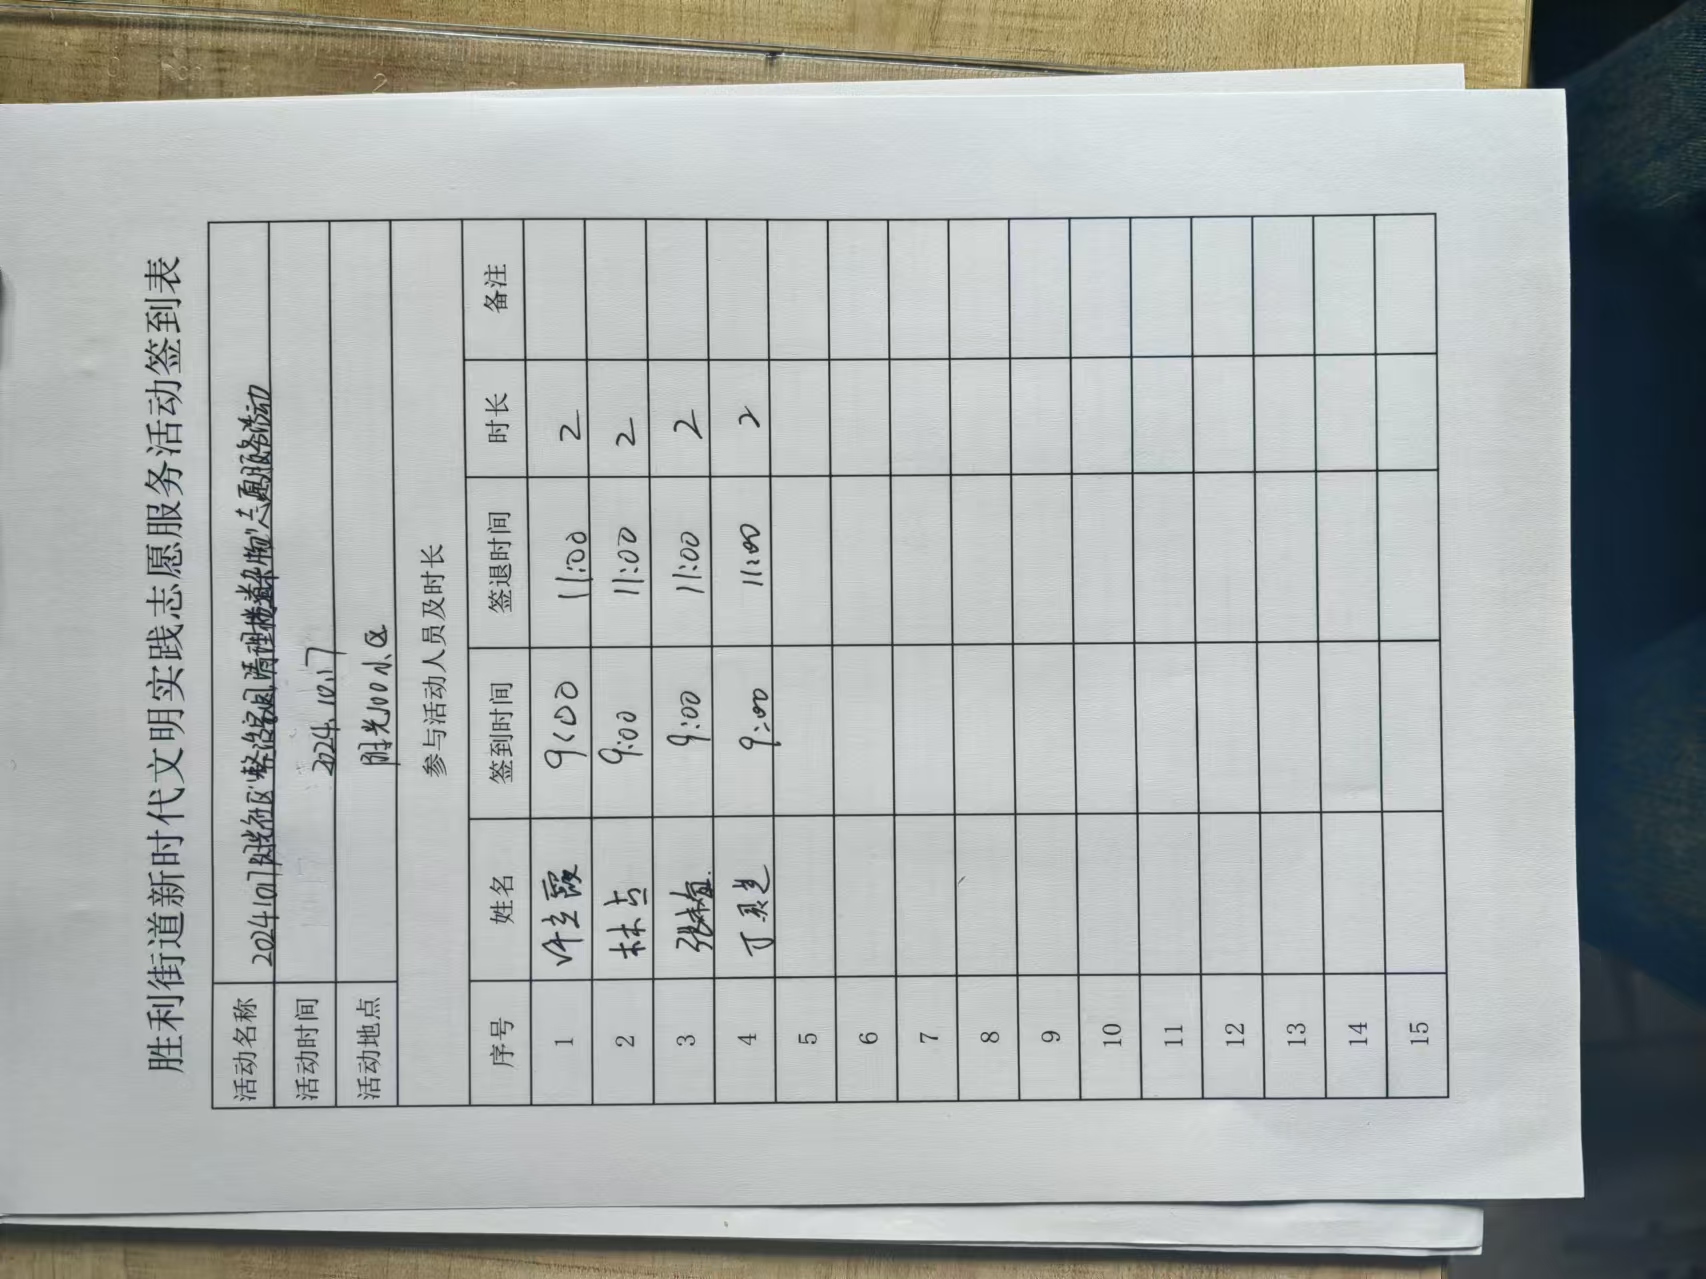 胜利街道新时代文明实践志愿服务活动签到表
活动名称 20241017时光社区"整治家园清理楼道杂物"志愿服务活动
活动时间 2024.10.17
活动地点 时光100小区
参与活动人员及时长
序号 姓名 签到时间 签退时间 时长 备注
1 许立霞 9:00 11:00 2
2 林占 9:00 11:00 2
3 张梅 9:00 11:00 2
4 丁灵芝 9:00 11:00 2
5
6
7
8
9
10
11
12
13
14
15